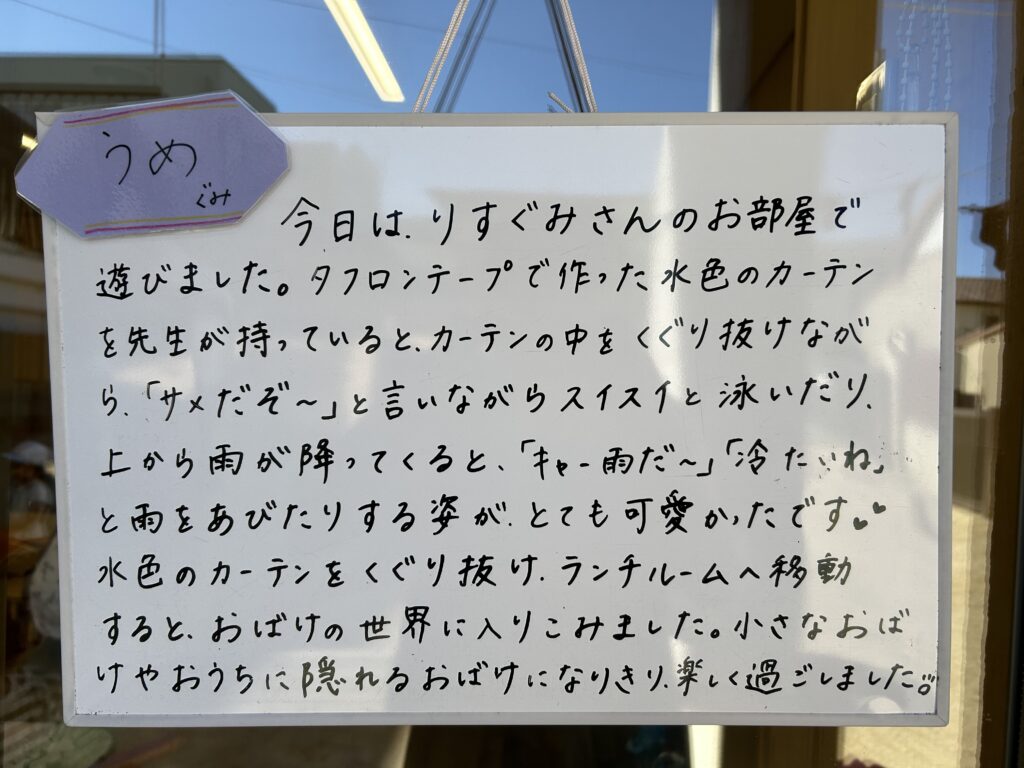 うめ
ぐみ
今日は、りすぐみさんのお部屋で
遊びました。タフロンテープで作った水色のカーテン
を先生が持っていると、カーテンの中をくぐり抜けなが
ら、「サメだぞ〜」と言いながらスイスイと泳いだり、
上から雨が降ってくると、「キャー雨だ〜」「冷たいね」
と雨をあびたりする姿が、とても可愛かったです♥♥
水色のカーテンをくぐり抜け、ランチルームへ移動
すると、おばけの世界に入りこみました。小さなおば
けやおうちに隠れるおばけになりきり、楽しく過ごしました。